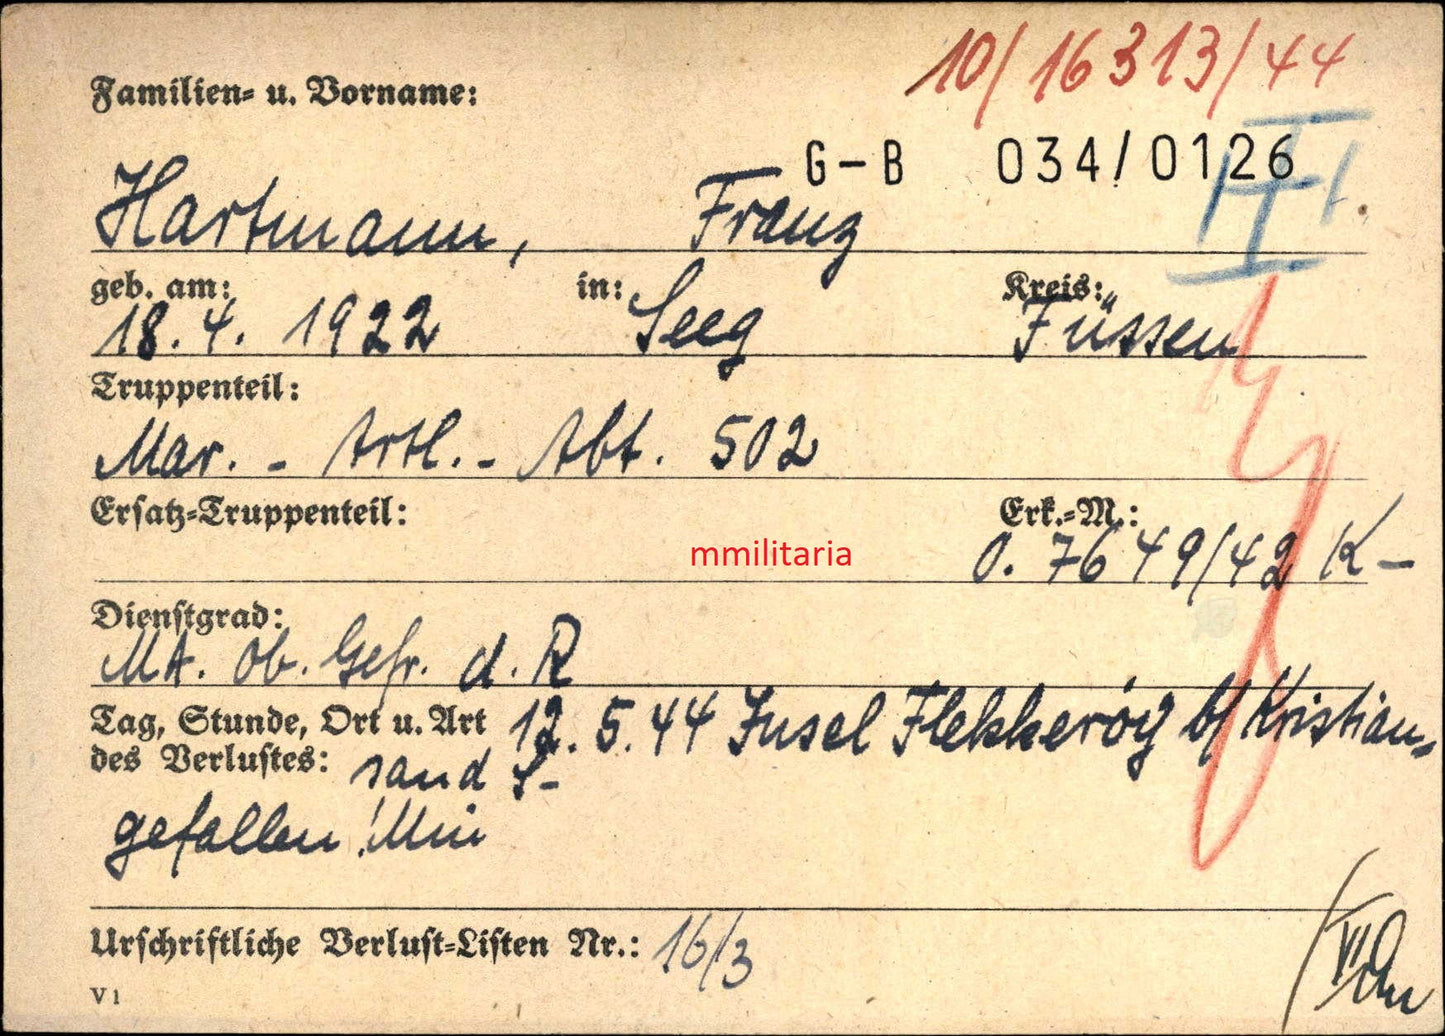 10/16313/44
Familien- u. Vorname:
G-B 034/0126
Hartmann, Franz
geb. am: in: Kreis:
18. 4. 1922 Seeg Füssen
Truppenteil:
Mar. - Artl. - Abt. 502
Ersatz-Truppenteil: Erk.-M.:
mmilitaria
O. 7649/42 K-
Dienstgrad:
MA. Ob. Gefr. d. R
Tag, Stunde, Ort u. Art 12. 5. 44 Insel Flekkeröy b/ Kristian-
des Verlustes: sand S-
gefallen
Urschriftliche Verlust-Listen Nr.: 16/3
V1